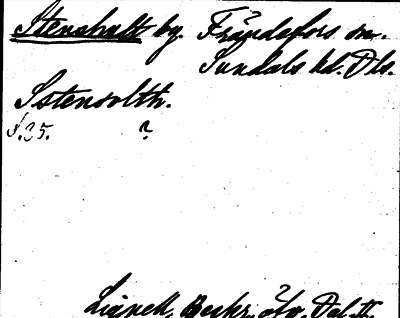 Stenshult by. Frändefors sn.
Sundals hd. Dls.
Sstensolth.
s.35. ?
Lignell, Beskr. öfv. Dal. II.